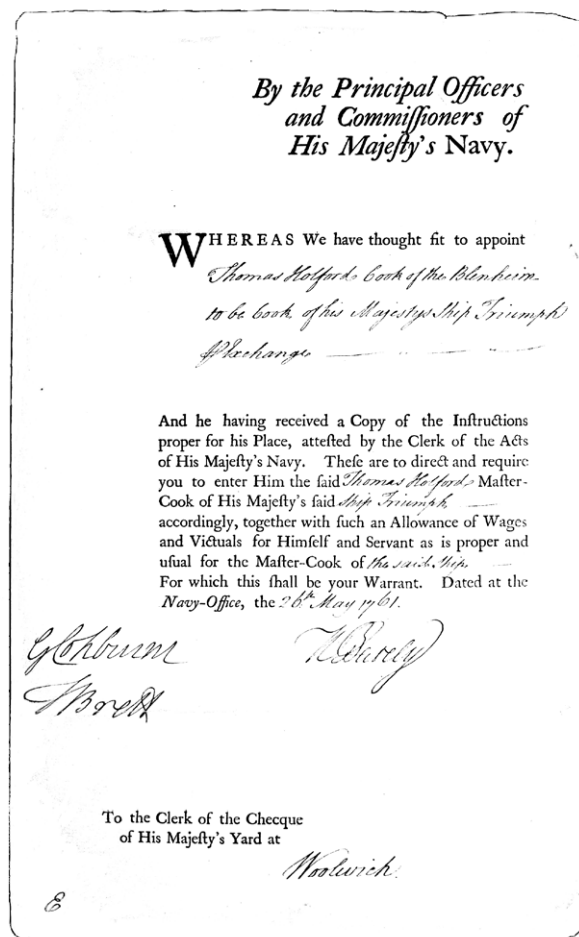 By the Principal Officers
and Commiſſioners of
His Majeſty's Navy.
WHEREAS We have thought fit to appoint
Thomas Holford Cook of the Blenheim
to be Cook of his Majestys Ship Triumph
⅌ Exchange
And he having received a Copy of the Inſtructions
proper for his Place, atteſted by the Clerk of the Acts
of His Majeſty's Navy. Theſe are to direct and require
you to enter Him the ſaid Thomas Holford Maſter-
Cook of His Majeſty's ſaid Ship Triumph
accordingly, together with ſuch an Allowance of Wages
and Victuals for Himſelf and Servant as is proper and
uſual for the Maſter-Cook of the said Ship
For which this ſhall be your Warrant. Dated at the
Navy-Office, the 26th May 1761.
G Cokburne
T Brett
To the Clerk of the Checque
of His Majeſty's Yard at
Woolwich.
E